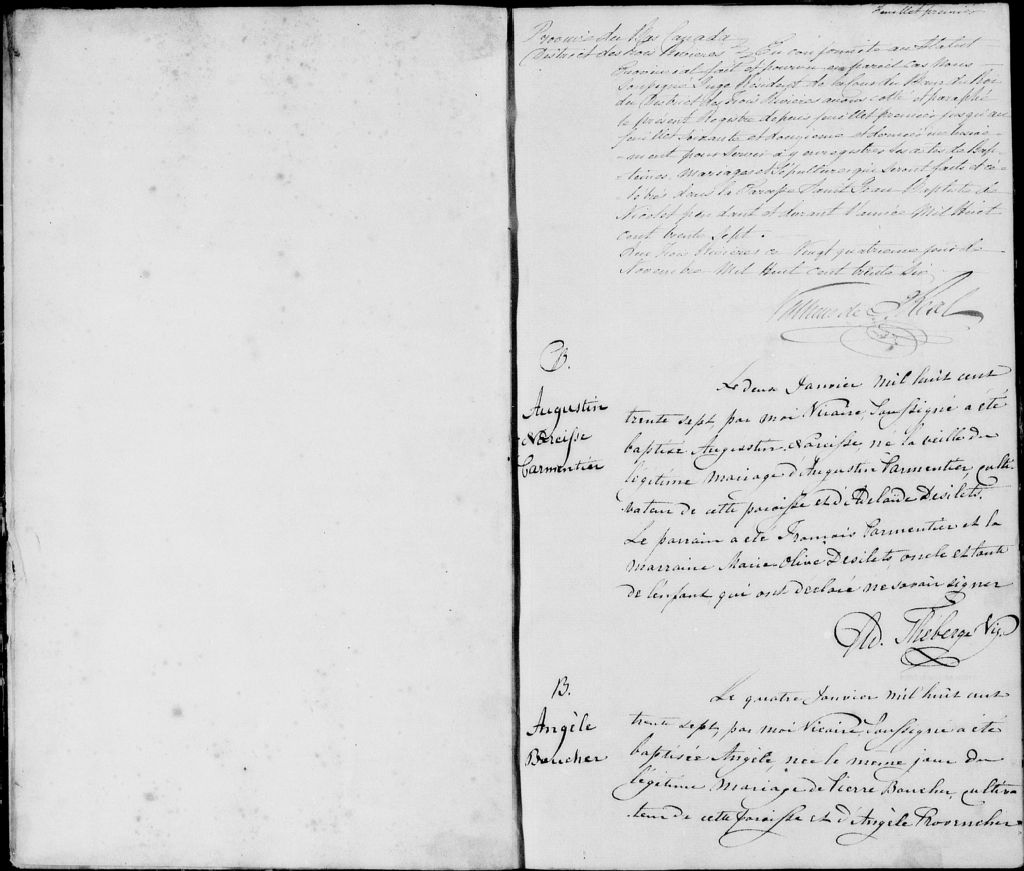 feuillet premier
Province du Bas Canada
District des Trois Rivieres } En conformité au Statut
Provincial fait et pourvu en pareil cas Nous
soussigné Juge Résident de la Cour du Banc du Roi
du District des Trois Rivieres avons cotté et paraphé
le present Registre depuis feuillet premier jusqu'au
feuillet soixante et douzieme et dernier
pour servir à y enregistrer les actes de Bap-
têmes, mariages et sépultures qui seront faits et cé-
lébrés dans la Paroisse Saint Jean Baptiste de
Nicolet pendant et durant l'année Mil Huit
cent trente Sept.
Aux Trois Rivieres ce Vingt quatrieme jour de
Novembre Mil Huit cent trente Six
Vallieres de St Real
B.
Augustin
Narcisse
Parmentier
Le deux Janvier mil huit cent
trente sept, par moi Vicaire Soussigné a été
baptisé Augustin Narcisse, né la veille du
légitime mariage d'Augustin Parmentier, culti-
vateur de cette paroisse et d'Adelaïde Desilets.
Le parrain a été François Parmentier et la
marraine Marie-Olive Desilets, oncle et tante
de l'enfant, qui ont déclaré ne savoir signer
Ed. Théberge Vic.
B.
Angèle
Boucher
Le quatre Janvier mil huit cent
trente sept, par moi Vicaire Soussigné a été
baptisée Angèle, née le meme jour du
légitime mariage de Pierre Boucher, cultiva
teur de cette Paroisse et d'Angèle Provencher